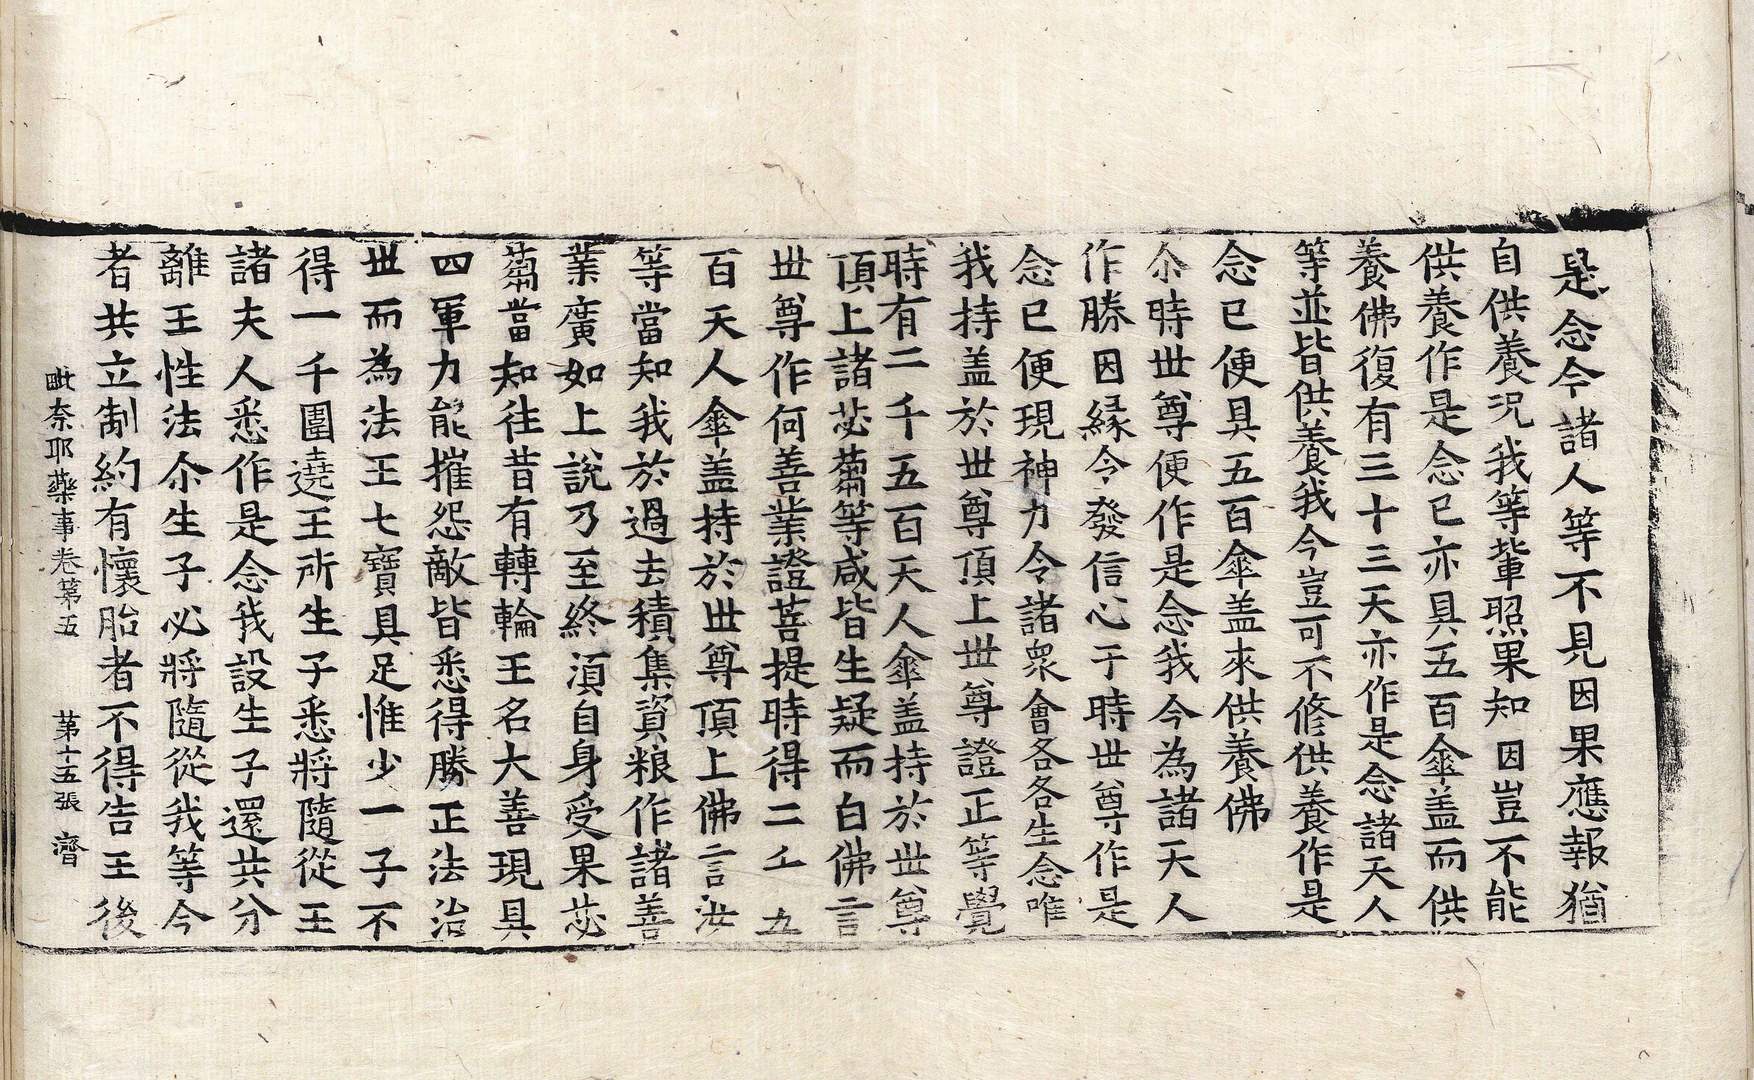 是念今諸人等不見因果應報猶
自供養況我等輩照果知因豈不能
供養作是念已亦具五百傘盖而供
養佛復有三十三天亦作是念諸天人
等並皆供養我今豈可不修供養作是
念已便具五百傘盖來供養佛
尒時世尊便作是念我今為諸天人
作勝因緣令發信心于時世尊作是
念已便現神力令諸衆會各各生念唯
我持盖於世尊頂上世尊證正等覺
時有二千五百天人傘盖持於世尊
頂上諸苾蒭等咸皆生疑而白佛言
世尊作何善業證菩提時得二千五
百天人傘盖持於世尊頂上佛言汝
等當知我於過去積集資粮作諸善
業廣如上說乃至終須自身受果苾
蒭當知往昔有轉輪王名大善現具
四軍力能摧怨敵皆悉得勝正法治
世而為法王七寶具足惟少一子不
得一千圍遶王所生子悉將隨從王
諸夫人悉作是念我設生子還共分
離王性法尒生子必將隨從我等今
者共立制約有懷胎者不得告王後
毗奈耶藥事卷第五 第十五張 濟